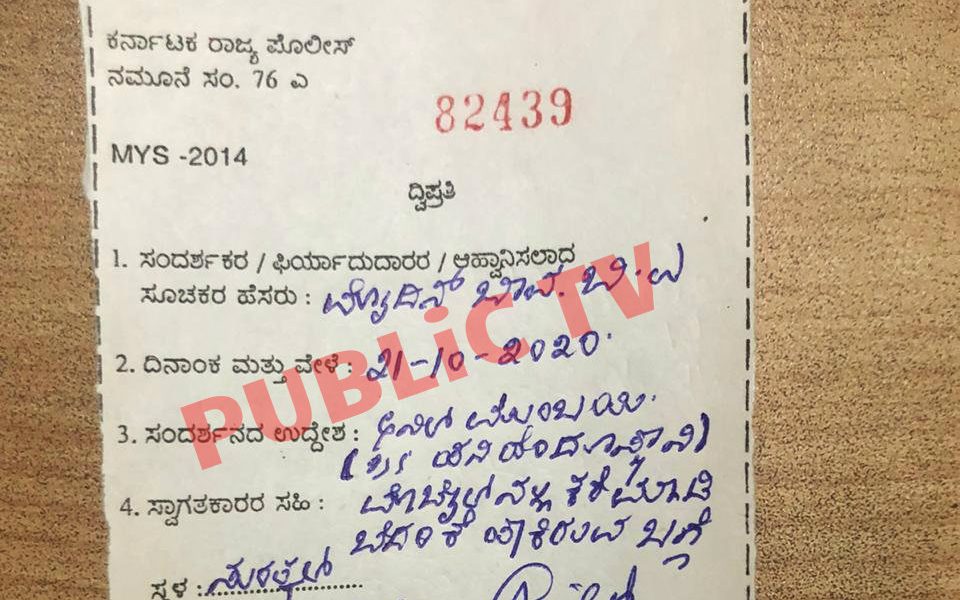 ಕರ್ನಾಟಕ ರಾಜ್ಯ ಪೊಲೀಸ್
ನಮೂನೆ ಸಂ. 76 ಎ
82439
MYS -2014
ದ್ವಿಪ್ರತಿ
1. ಸಂದರ್ಶಕರ / ಫಿರ್ಯಾದುದಾರರ / ಆಹ್ವಾನಿಸಲಾದ
ಸೂಚಕರ ಹೆಸರು : ಮೊಯಿದಿನ್ ಬಾವ. ಬಿ. ಎ
2. ದಿನಾಂಕ ಮತ್ತು ವೇಳೆ : 21-10-2020.
PUBLiC TV
3. ಸಂದರ್ಶನದ ಉದ್ದೇಶ :
4. ಸ್ವಾಗತಕಾರರ ಸಹಿ : ಕರೆ ಮಾಡಿ
ಬೆದರಿಕೆ ಹಾಕಿರುವ ಬಗ್ಗೆ
ಸ್ಥಳ : ಸುರತ್ಕಲ್